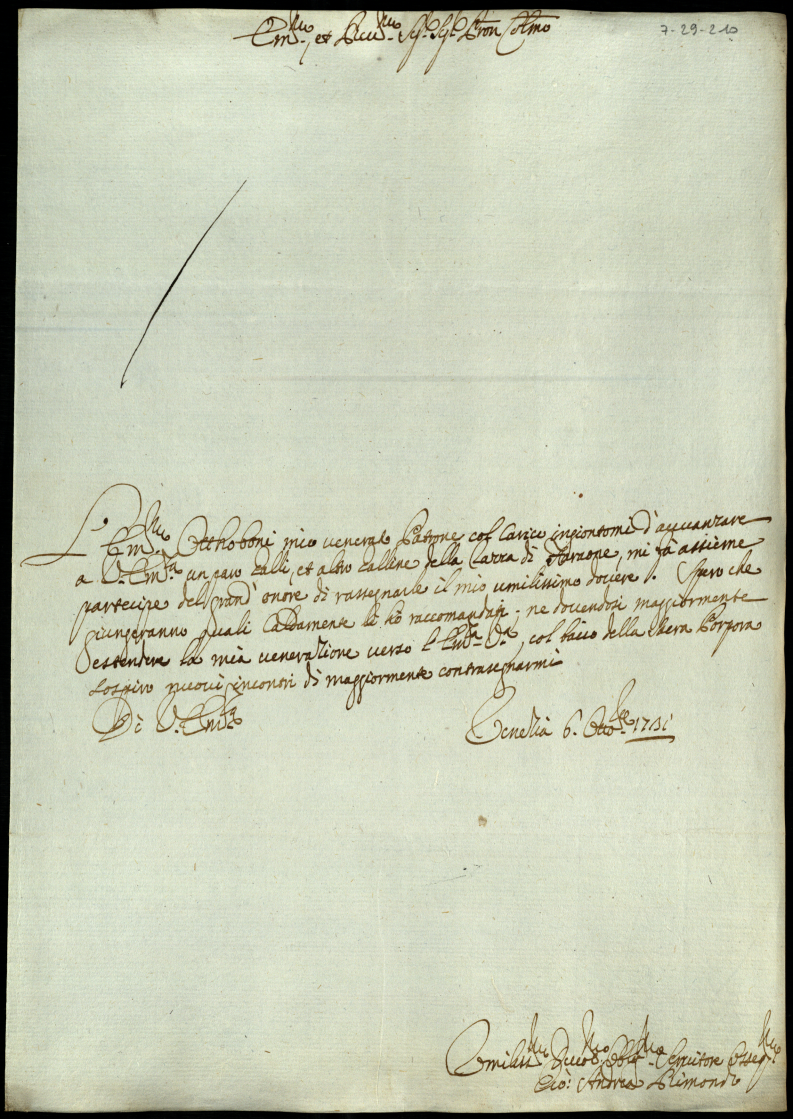 Em.mo, et Rev.mo Sig.r Sig.r Pron Colmo
7-29-210
L'Em.mo Otthoboni mio venerato Patrone col carico ingiontomi d'avvanzare
a V.Em.za un paro Galli, et altro Galline della Razza di Faraone, mi fà assieme
partecipe del grand'onore di rassegnarle il mio umilissimo dovere. Spero che
giungeranno quali caldamente le hò raccomandate, ne dovendosi maggiormente
estendere la mia venerazione verso l'Em.za V.a, col bacio della Sacra Porpora
sospiro nuovi incontri di maggiormente contrasegnarmi
Di V.Em.za
Venezia 6. Otto.bre 1731
Umiliss.mo Devot.mo Oblig.mo Servitore Osseq.mo
Gio: Andrea